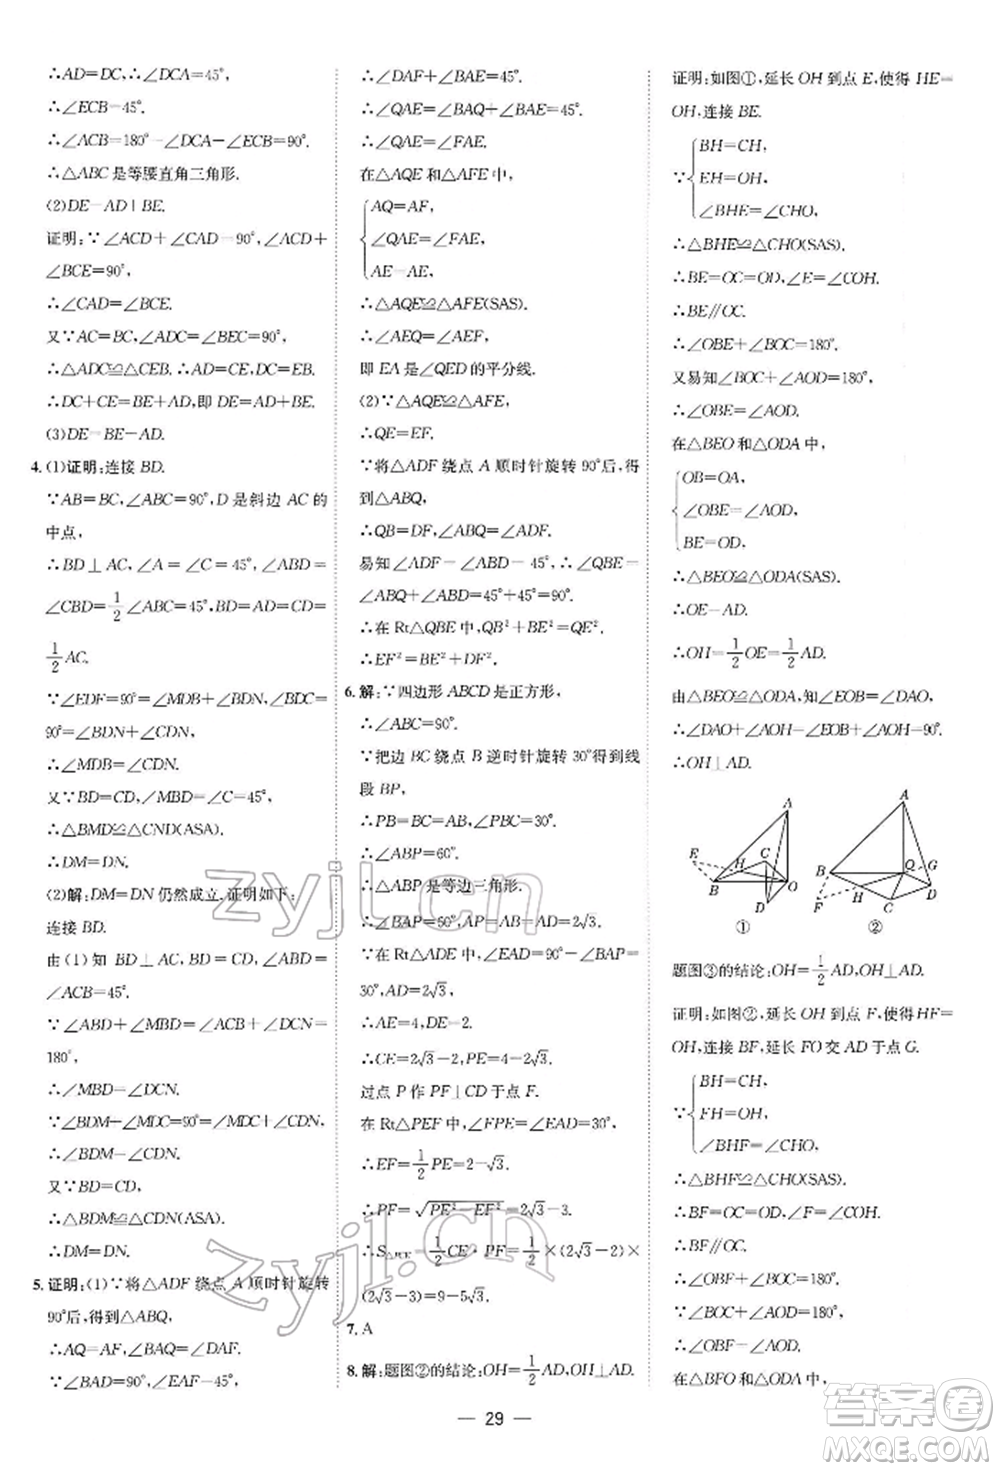 ∴AD=DC,∴∠DCA=45°,
∴∠ECB=45°.
∴∠ACB=180°-∠DCA-∠ECB=90°.
∴△ABC 是等腰直角三角形.
(2)DE=AD+BE.
证明:∵∠ACD+∠CAD=90°,∠ACD+
∠BCE=90°,
∴∠CAD=∠BCE.
又∵AC=BC,∠ADC=∠BEC=90°,
∴△ADC≌△CEB.∴AD=CE,DC=EB.
∴DC+CE=BE+AD,即 DE=BE+AD.
(3)DE=BE-AD.
4.(1)证明:连接 BD.
∵AB=BC,∠ABC=90°,D 是斜边 AC 的
中点,
∴BD⊥AC,∠A=∠C=45°,
∠CBD=1/2∠ABC=45°.BD=AD=CD=
1/2AC.
∵∠EDF=90°,∴∠MDB+∠BDN=
90°=∠BDN+∠CDN,
∴∠MDB=∠CDN.
又∵BD=CD,∠MBD=∠C=45°,
∴△BMD≌△CND(ASA).
∴DM=DN.
(2)解:DM=DN 仍然成立,证明如下:
连接 BD.
由(1)知 BD⊥AC,∠ABD=
∠ACB=45°.
∵∠ABD+∠MBD=∠ACB+∠DCN=
180°,
∴∠MBD=∠DCN.
∵∠BDM+∠MDC=90°=∠MDC+∠CDN,
∴∠BDM=∠CDN.
又∵BD=CD,
∴△BDM≌△CDN(ASA).
∴DM=DN.
5.证明:(1)∵将△ADF 绕点 A 顺时针旋转
90°后,得到△ABQ,
∴AQ=AF,∠BAQ=∠DAF.
∵∠BAD=90°,∠EAF=45°,
∴∠DAF+∠BAE=45°.
∴∠QAE=∠BAQ+∠BAE=45°.
∴∠QAE=∠FAE.
在△AQE 和△AFE 中,
AQ=AF,
∠QAE=∠FAE,
AE=AE,
∴△AQE≌△AFE(SAS).
∴∠AEQ=∠AEF,
即 EA 是∠QED 的平分线.
(2)∵△AQE≌△AFE,
∴QE=EF.
∵将△ADF 绕点 A 顺时针旋转 90°后,得
到△ABQ,
∴QB=DF,∠ABQ=∠ADF.
易知∠ADF=∠ABD=45°,∴∠QBE=
∠ABQ+∠ABD=45°+45°=90°.
∴在 Rt△QBE 中,QB²+BE²=QE².
∴EF²=BE²+DF².
6.解:∵四边形 ABCD 是正方形,
∴∠ABC=90°.
∵把边 BC 绕点 B 逆时针旋转 30°得到线
段 BP,
∴PB=BC=AB,∠PBC=30°.
∴∠ABP=60°.
∴△ABP 是等边三角形.
∴∠BAP=60°,AP=AB=2√3.
∴在 Rt△ADE 中,∠EAD=90°-∠BAP=
30°,AD=2√3,
∴AE=4,DE=2.
∴CE=2√3-2,PE=4-2√3.
过点 P 作 PF⊥CD 于点 F.
在 Rt△PEF 中,∠FPE=∠EAD=30°,
∴EF=1/2PE=2-√3.
∴PF=√(PE²-EF²)=2√3-3.
∴S△PCE=1/2CE·PF=1/2×(2√3-2)×
(2√3-3)=9-5√3.
7.A
8.解:题图②的结论:OH=1/2AD,OH⊥AD.
证明:如图①,延长 OH 到点 E,使得 HE=
OH,连接 BE.
BH=CH,
∵ EH=OH,
∠BHE=∠CHO,
∴△BHE≌△CHO(SAS).
∴BE=OC=OD,∠EBH=∠HCO.
∴BE∥OC.
∴∠OBE+∠BOC=180°.
又易知∠BOC+∠AOD=180°,
∴∠OBE=∠AOD.
在△BEO 和△ODA 中,
OB=OA,
∠OBE=∠AOD,
BE=OD,
∴△BEO≌△ODA(SAS).
∴OE=AD.
∴OH=1/2OE=1/2AD.
由△BEO≌△ODA,知∠EOB=∠DAO,
∴∠DAO+∠AOH=∠EOB+∠AOH=90°.
∴OH⊥AD.
A
E
H
C
B
O
D
①
A
B
O
G
F
H
C
D
②
题图③的结论:OH=1/2AD,OH⊥AD.
证明:如图②,延长 OH 到点 F,使得 HF=
OH,连接 BF,延长 FO 交 AD 于点 G.
BH=CH,
∵ FH=OH,
∠BHF=∠CHO,
∴△BHF≌△CHO(SAS).
∴BF=OC=OD,∠FBH=∠OCH.
∴BF∥OC.
∴∠OBF+∠BOC=180°.
∵∠BOC+∠AOD=180°,
∴∠OBF=∠AOD.
在△BFO 和△ODA 中,
— 29 —
zyjl.cn
zyjl.cn
答案圈
MXQE.COM